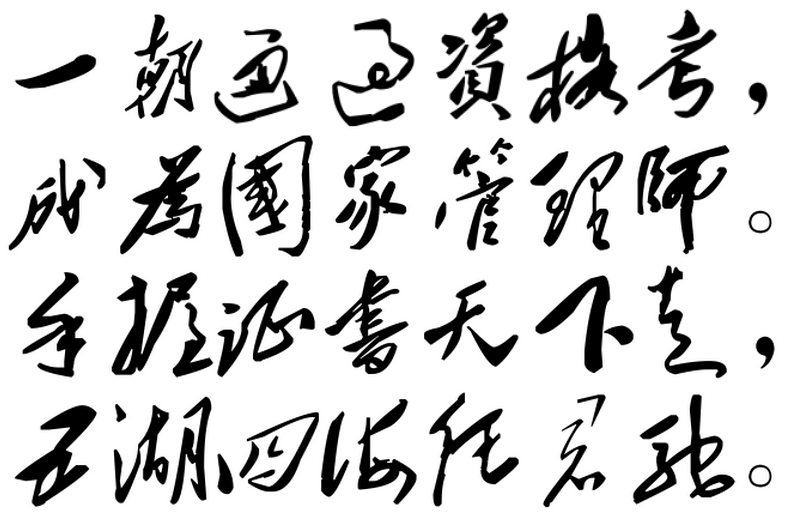 一朝通過資格考，
成為國家管理師。
手握证書天下走，
五湖四海任君馳。